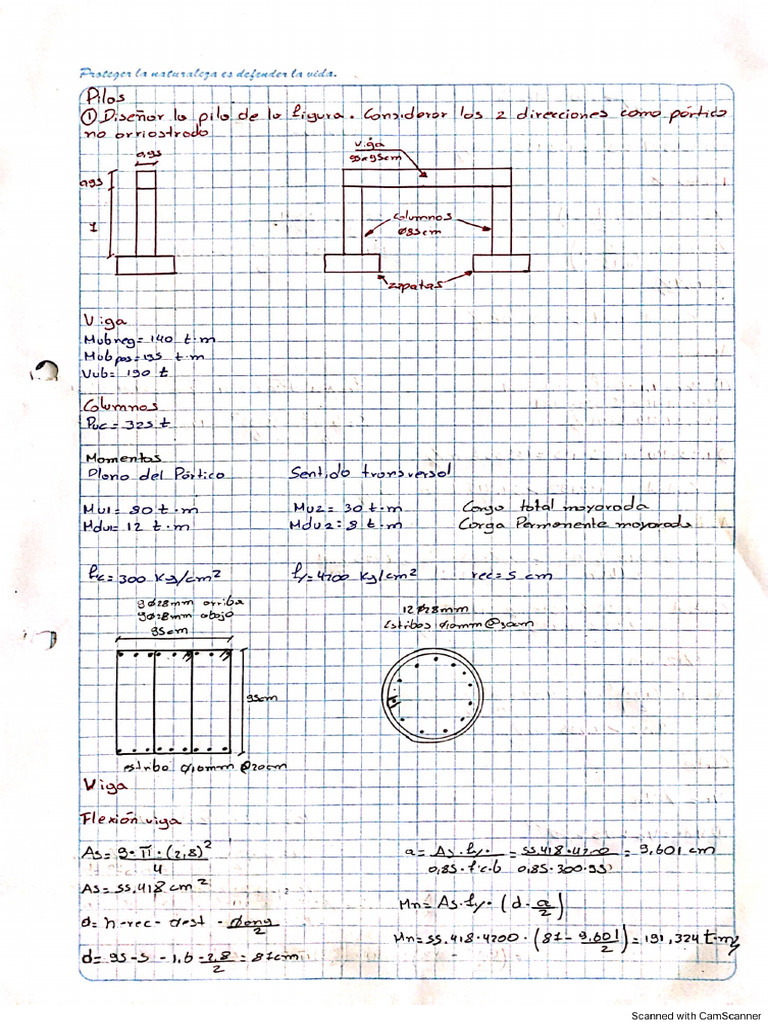 Proteger la naturaleza es defender la vida.
Pilas
① Diseñar la pila de la figura. Considerar las 2 direcciones como pórtico
no arriostrado
0,95
0,95
viga
95x95cm
columnas
Ø85cm
zapatas
Viga
Mubneg= 140 t·m
Mubpos=135 t·m
Vub= 190 t
Columnas
Puc= 325 t
Momentos
Plano del Pórtico Sentido transversal
Mu1= 80 t·m Mu2= 30 t·m Carga total mayorada
Mdu1= 12 t·m Mdu2= 8 t·m Carga Permanente mayorada
f'c= 300 Kg/cm² fy= 4200 Kg/cm² rec= 5 cm
9Ø28mm arriba
9Ø28mm abajo
95cm
95cm
estribo Ø10mm @20cm
12Ø28mm
Estribos Ø10mm@30cm
Viga
Flexión viga
As= 9·π·(2,8)²/4
As= 55.418 cm²
d= h-rec- Øest - Ølong/2
d= 95-5 - 1.6 - 2.8/2 = 87cm
a= As·fy/0,85·f'c·b = 55.418·4200/0,85·300·95 = 9.601 cm
Mn= As·fy·(d-a/2)
Mn= 55.418·4200·(87- 9.601/2) = 191,324 t·m
Scanned with CamScanner